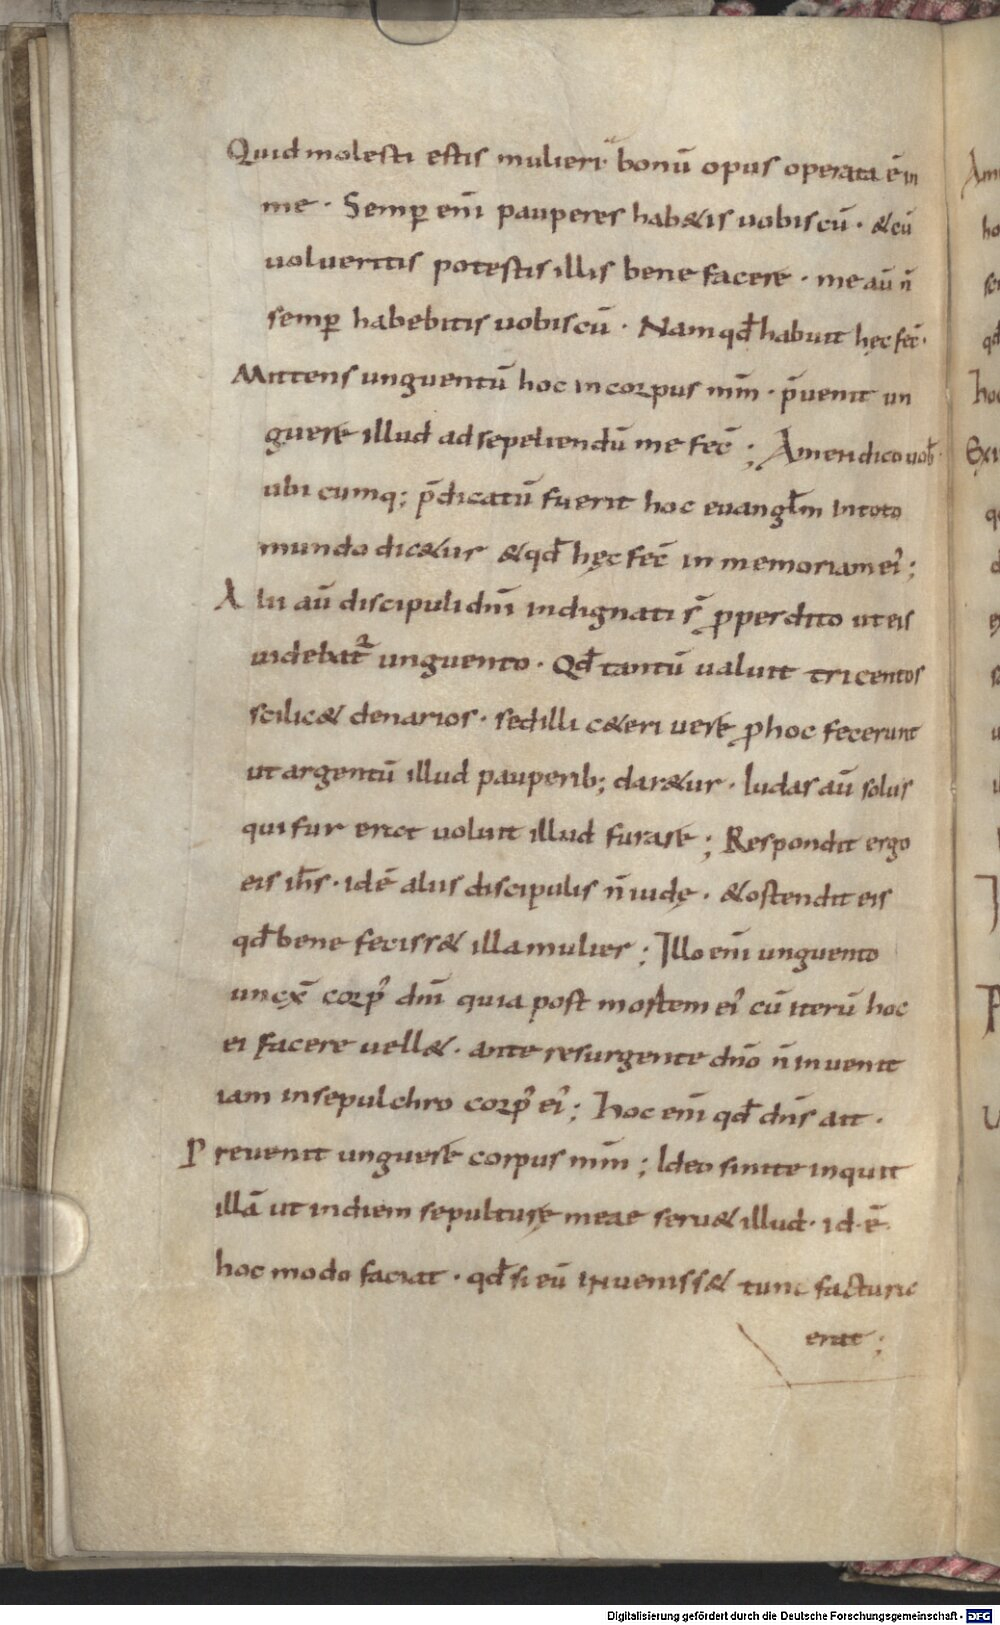 Quid molesti estis mulieri· bonū opus operata ē in
me · Semꝑ eni̅ pauperes hab&is uobiscū · & cū
uolueritis potestis illis bene facere · me aū n̄
semꝑ habebitis uobiscū · Nam qđ habuit hęc fec̄·
Mittens unguentū hoc in corpus mm̄ · p̄uenit un
guere illud ad sepeliendū me fec̄ ; Amen dico uob̄·
ubi cumq; p̄dicatū fuerit hoc euangl̄m in toto
mundo dic&ur & qđ hęc fec̄ in memoriam ei᾽;
Alii aū discipuli dn̄i indignati s̄ ꝓ perdito ut eis
uidebat᷑ unguento · Qđ tantū ualuit tricentos
scilic& denarios · sed illi c&eri uere ꝓ hoc fecerunt
ut argentū illud pauperib; dar&ur · Iudas aū solus
qui fur erat uoluit illud furare ; Respondit ergo
eis ih̄s · id ē aliis discipulis n̄ iudę · & ostendit eis
qđ bene feciss& illa mulier ; Illo eni̅ unguento
uncx̄ corp᾽ dn̄i quia post mortem ei᾽ cū iterū hoc
ei facere uell& · ante resurgente dn̄o n̄ inuenit
iam in sepulchro corp᾽ ei᾽; hoc eni̅ qđ dn̄s ait ·
Preuenit unguere corpus mm̄ ; Ideo sinite inquit
illā ut in diem sepulturę meae seru& illud · id · ē·
hoc modo faciat · qđ si eū inueniss& tunc factura
erat ;
Digitalisierung gefördert durch die Deutsche Forschungsgemeinschaft - DFG